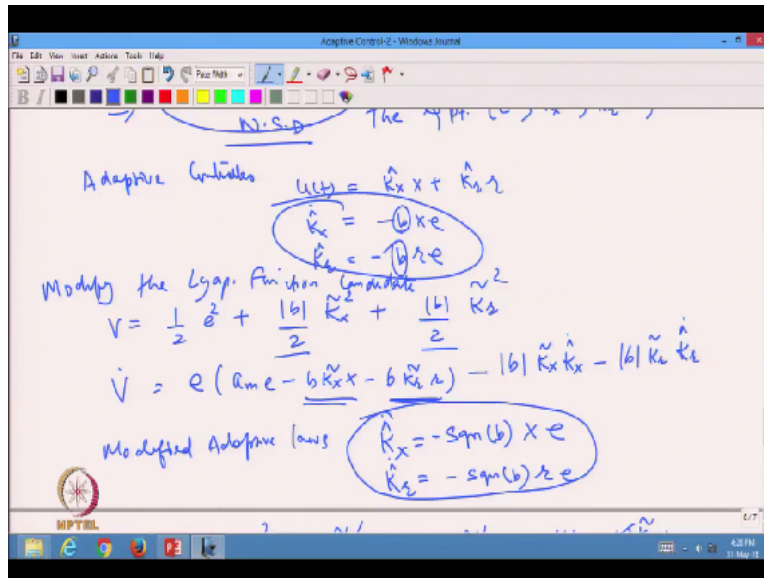 Adaptive Control-2 - Windows Journal
File Edit View Insert Actions Tools Help
Page Width
B I
N.S.D The
Adaptive Controller u(t) = k̂ₓ x + k̂ᵣ r
k̂̇ₓ = -b x e
k̂̇ᵣ = -b r e
Modify the Lyap. Function Candidate
V = 1/2 e² + |b|/2 k̃ₓ² + |b|/2 k̃ᵣ²
V̇ = e (aₘ e - b k̃ₓ x - b k̃ᵣ r) - |b| k̃ₓ k̂̇ₓ - |b| k̃ᵣ k̂̇ᵣ
Modified Adaptive laws k̂̇ₓ = -sgn(b) x e
k̂̇ᵣ = -sgn(b) r e
NPTEL
6/7
4:28 PM
31-May-18